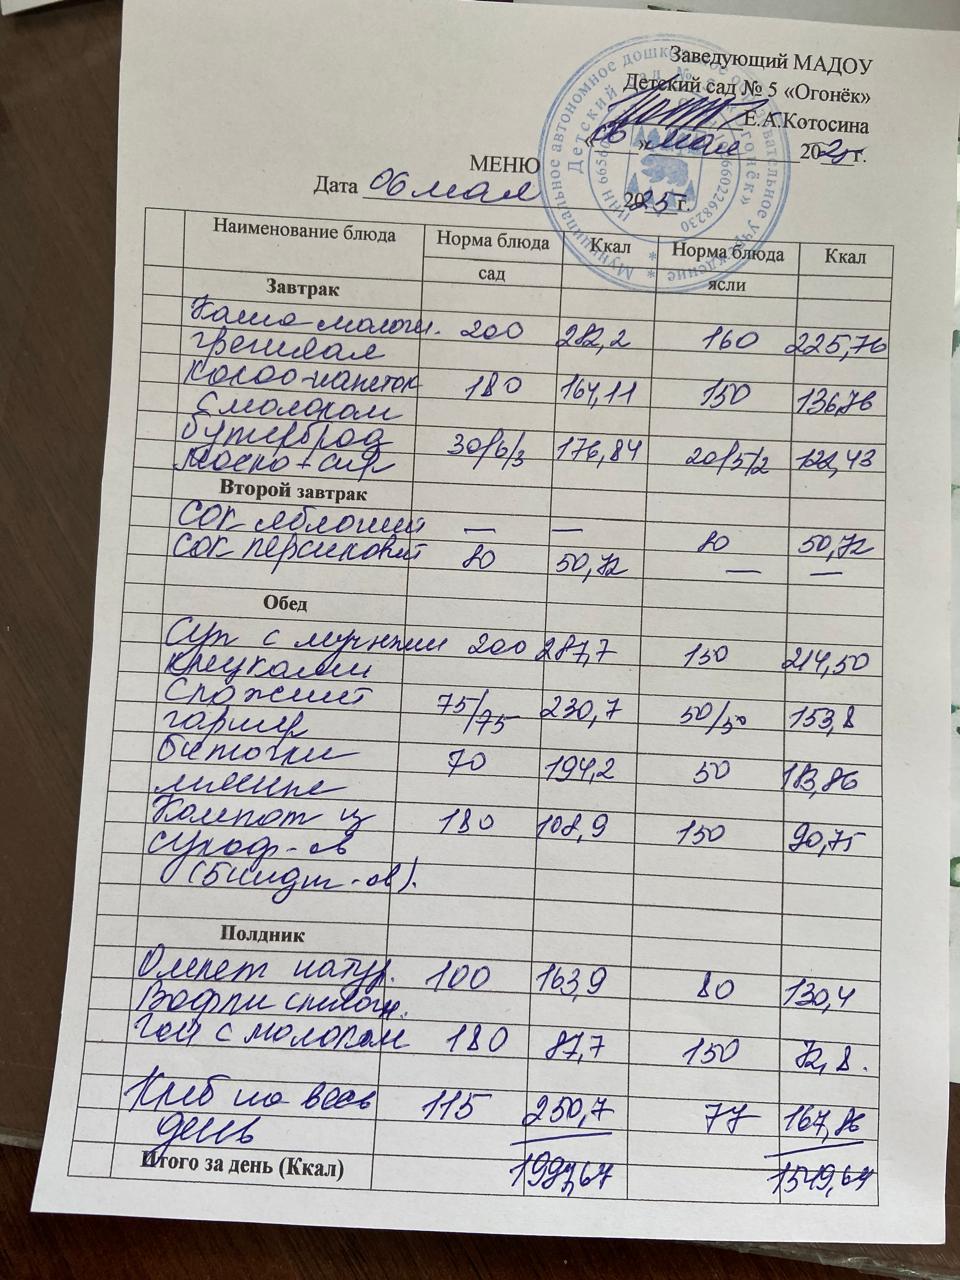 Заведующий МАДОУ
Детский сад № 5 «Огонёк»
Е.А.Котосина
«06» мая 2025 г.
МЕНЮ
Дата 06 мая 2025 г.
Наименование блюда Норма блюда Ккал Норма блюда Ккал
сад ясли
Завтрак
Каша молочн. 200 282,2 160 225,76
гречневая
Какао-напиток 180 164,11 150 136,76
с молоком
бутерброд 30/6/3 176,84 20/5/2 122,43
масло + сыр
Второй завтрак
Сок яблочный — — 80 50,72
Сок персиковый 80 50,72 — —
Обед
Суп с мучными 200 287,7 150 214,50
клецками
Сложный 75/75 230,7 50/50 153,8
гарнир
Биточки 70 194,2 50 183,86
мясные
Компот из 180 108,9 150 90,75
сухоф-ов
Полдник
Омлет натур. 100 163,9 80 130,4
Вафли
Чай с молоком 180 87,7 150 72,8.
Хлеб на весь 115 250,7 77 167,86
день
Итого за день (Ккал) 1997,67 1549,64